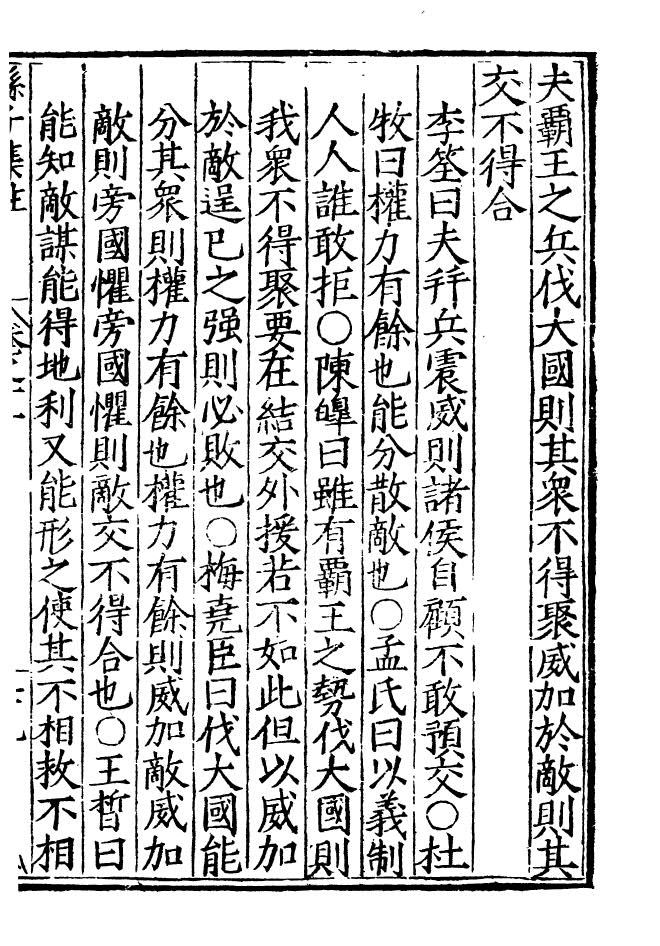 夫霸王之兵伐大國則其衆不得聚威加於敵則其
交不得合
李筌曰夫并兵震威則諸侯自顧不敢預交○杜
牧曰權力有餘也能分散敵也○孟氏曰以義制
人人誰敢拒○陳皥曰雖有霸王之勢伐大國則
我衆不得聚要在結交外援若不如此但以威加
於敵逞已之强則必敗也○梅堯臣曰伐大國能
分其衆則權力有餘也權力有餘則威加敵威加
敵則旁國懼旁國懼則敵交不得合也○王晳曰
能知敵謀能得地利又能形之使其不相救不相
孫子集註